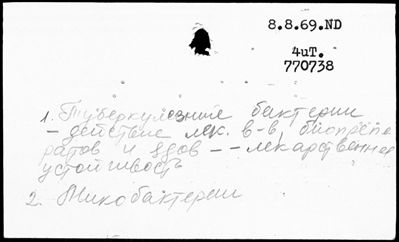 8.8.69.ND
4иТ.
770738
1. Туберкулезные бактерии
- действие лек. в-в, биопрепа
ратов и ядов - - лекарственная
устойчивость
2. Микобактерии